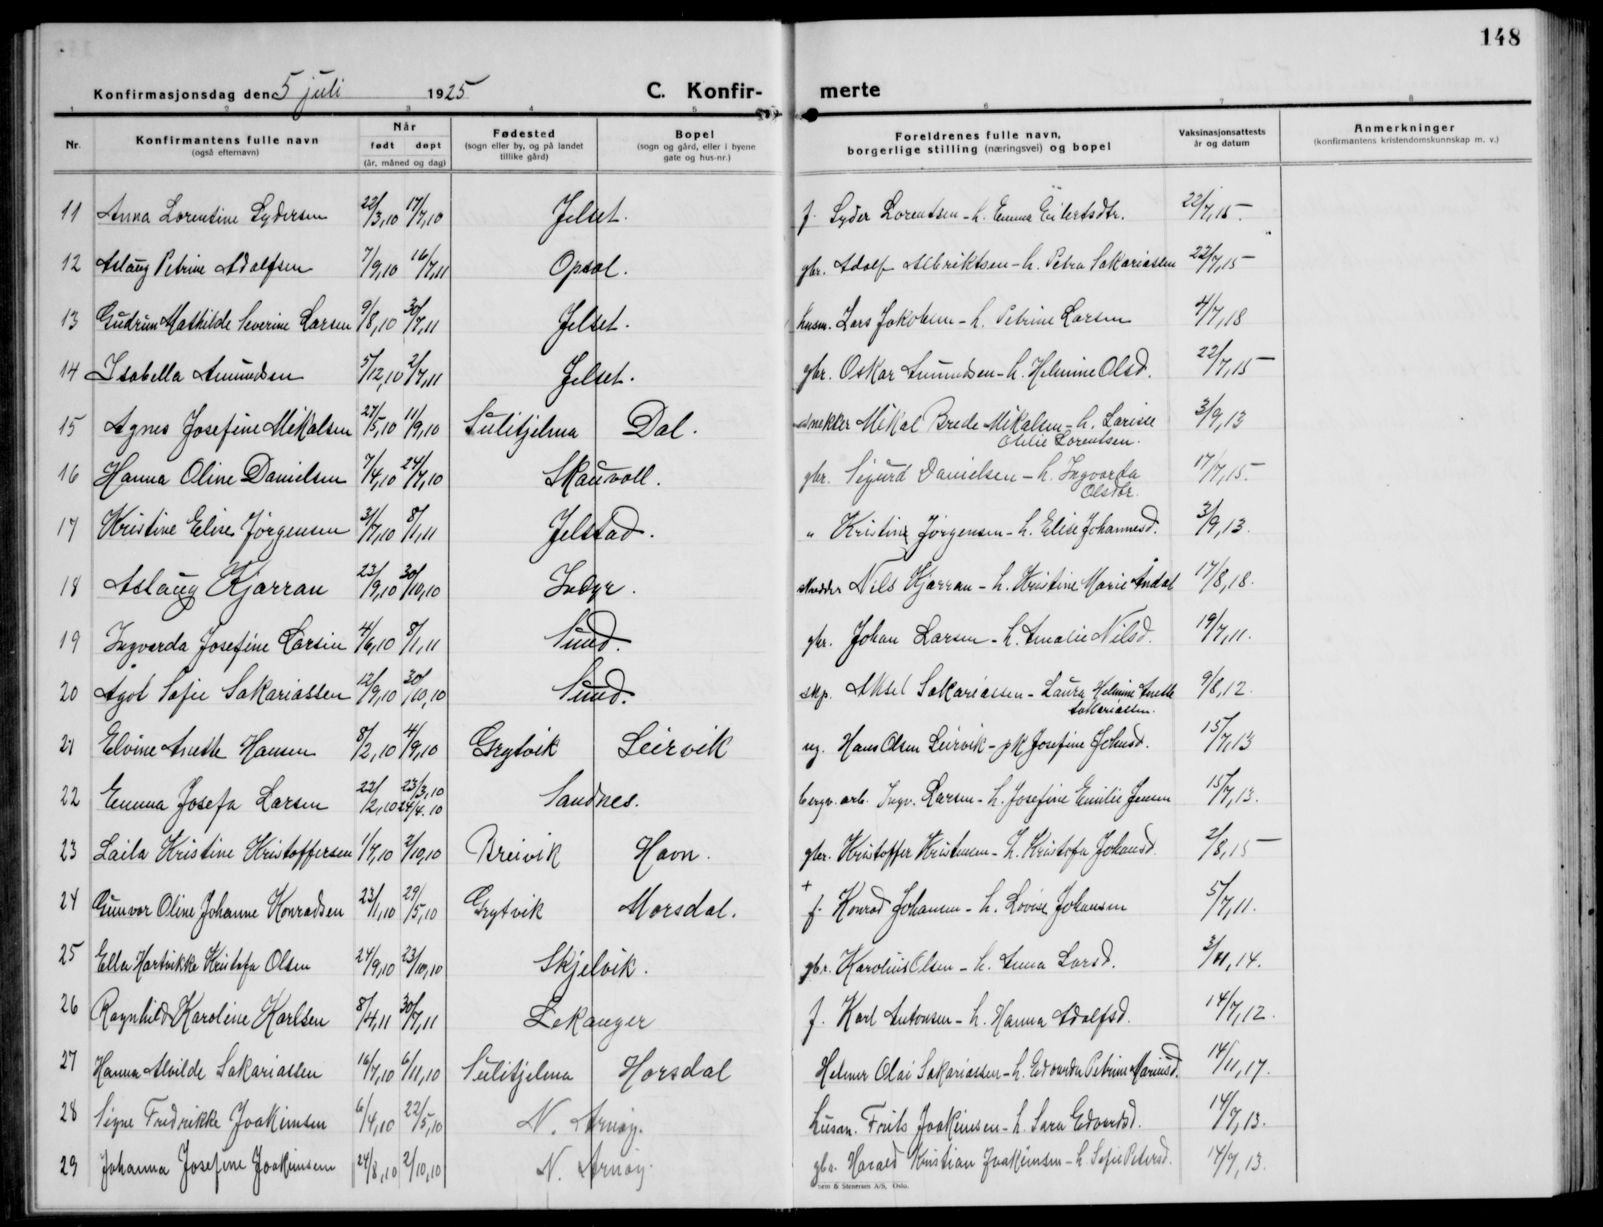 148
Konfirmasjonsdag den 5 juli 1925 C. Konfir- merte
1 2 3 4 5 6 7 8
Nr. Konfirmantens fulle navn (også efternavn) Når født døpt (år, måned og dag) Fødested (sogn eller by, og på landet tillike gård) Bopel (sogn og gård, eller i byene gate og hus-nr.) Foreldrenes fulle navn, borgerlige stilling (næringsvei) og bopel Vaksinasjonsattests år og datum Anmerkninger (konfirmantens kristendomskunnskap m. v.)
11 Anna Lorentine Sydersen 22/3,10 17/7,10 Jelset. f. Syder Lorentsen - h. Emma Eilertsdtr. 22/7,15.
12 Aslaug Petrine Adolfsen 7/9,10 16/7,11 Opsal. gbr. Adolf Albriktsen - h. Petra Sakariassen 22/7,15
13 Gudrun Mathilde Severine Larsen 9/8,10 30/7,11 Jelset. husm. Lars Jakobsen - h. Petrine Larsen 4/7,18
14 Isabella Amundsen 5/12,10 2/7,11 Jelset. gbr. Oskar Amundsen - h. Helmine Olsd. 22/7,15
15 Agnes Josefine Mikalsen 27/5,10 11/9,10 Sulitjelma Dal. snekker Mikal Brede Mikalsen - h. Larisse Otelie Lorentsen. 3/9,13
16 Hanna Oline Danielsen 7/4,10 24/7,10 Skauvoll. gbr. Sigurd Danielsen - h. Ingvarda Olsdtr. 17/7,15.
17 Kristine Elise Jørgensen 3/7,10 8/1,11 Jelstad. " Kristine Jørgensen - h. Elise Johannesd. 3/9,13.
18 Aslaug Kjarran 23/9,10 30/10,10 Inbyr. skredder Nils Kjarran - h. Kristine Marie Andal 17/8,18.
19 Ingvarda Josefine Larsen 4/6,10 8/1,11 Sund. gbr. Johan Larsen - h. Amalie Nilsd. 19/7,11.
20 Agot Sofie Sakariassen 12/9,10 30/10,10 Sund. skp. Aksel Sakariassen - Laura Helmine Anette Sakariassen. 9/8,12.
21 Elvine Anette Hansen 8/2,10 4/9,10 Grytvik Leirvik ug. Hans Olsen Leirvik - pk Josefine Johnsd. 15/7,13
22 Emma Josefa Larsen 22/2,10 23/3,10 24/4.10 Sandnes. bergv. arb. Ingv. Larsen - h. Josefine Emilie Jensen 15/7,13.
23 Laila Kristine Kristoffersen 1/7,10 2/10,10 Breivik Havn. gbr. Kristoffer Kristensen - h. Kristofa Johansd. 2/8,15
24 Gunvor Oline Johanne Konradsen 23/1,10 29/5,10 Grytvik Morsdal. + f. Konrad Johansen - h. Lovise Johansen 5/7,11.
25 Ella Hartvikke Kristofa Olsen 24/9,10 23/10,10 Skjelvik. gbr. Karolius Olsen - h. Anna Larsd. 3/11,14.
26 Ragnhild Karoline Karlsen 8/4,11 30/7,11 Lekanger f. Karl Antonsen - h. Hanna Adolfsd. 14/7,12.
27 Hanna Alvilde Sakariassen 16/7,10 6/11,10 Sulitjelma Horsdal Helmer Olai Sakariassen - h. Edvarda Petrine Mariusd. 14/11,17.
28 Signe Fredrikke Joakimsen 6/4,10 22/5,10 N. Arnøy. husm. Frits Joakimsen - h. Sara Edvardsd. 14/7,13.
29 Johanna Josefine Joakimsen 24/8,10 2/10,10 N. Arnøy. gbr. Harald Kristian Joakimsen - h. Sofie Petersd. 14/7,13.
Sem & Stenersen A/S, Oslo.